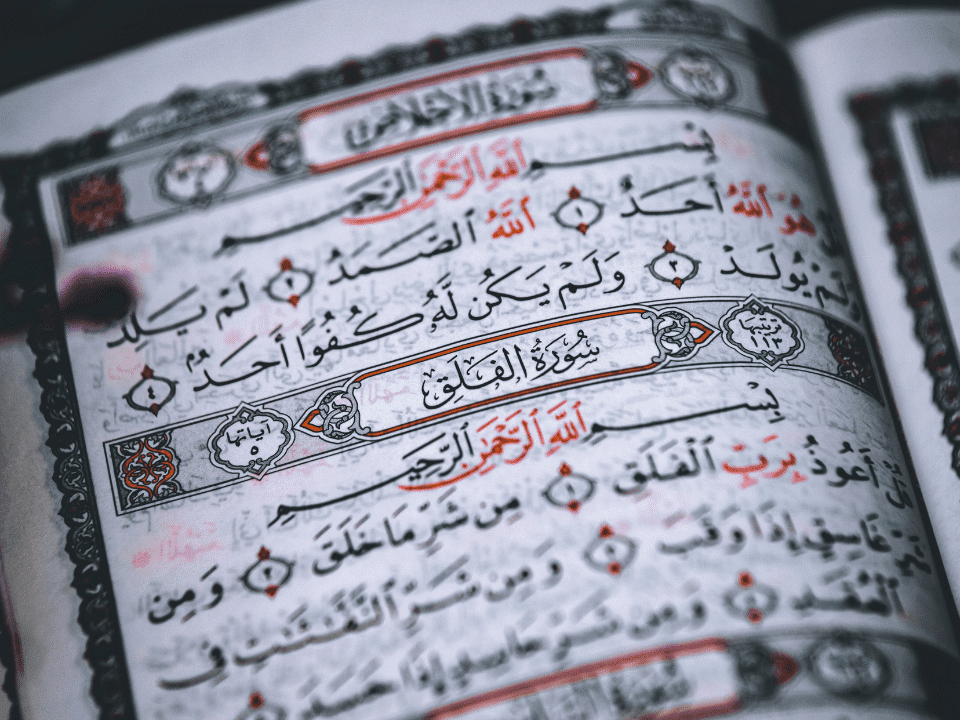 سُورَةُ الإِخْلَاصِ
بِسْمِ ٱللَّهِ ٱلرَّحْمَٰنِ ٱلرَّحِيمِ
هُوَ ٱللَّهُ أَحَدٌ ١ ٱللَّهُ ٱلصَّمَدُ ٢ لَمْ يَلِدْ
وَلَمْ يُولَدْ ٣ وَلَمْ يَكُن لَّهُۥ كُفُوًا أَحَدٌۢ ٤
ترتيبها ١١٣ سُورَةُ الْفَلَقِ آياتها ٥
بِسْمِ ٱللَّهِ ٱلرَّحْمَٰنِ ٱلرَّحِيمِ
قُلْ أَعُوذُ بِرَبِّ ٱلْفَلَقِ ١ مِن شَرِّ مَا خَلَقَ ٢ وَمِن
شَرِّ غَاسِقٍ إِذَا وَقَبَ ٣ وَمِن شَرِّ ٱلنَّفَّٰثَٰتِ فِى
ٱلْعُقَدِ ٤ وَمِن شَرِّ حَاسِدٍ إِذَا حَسَدَ
سُورَةُ